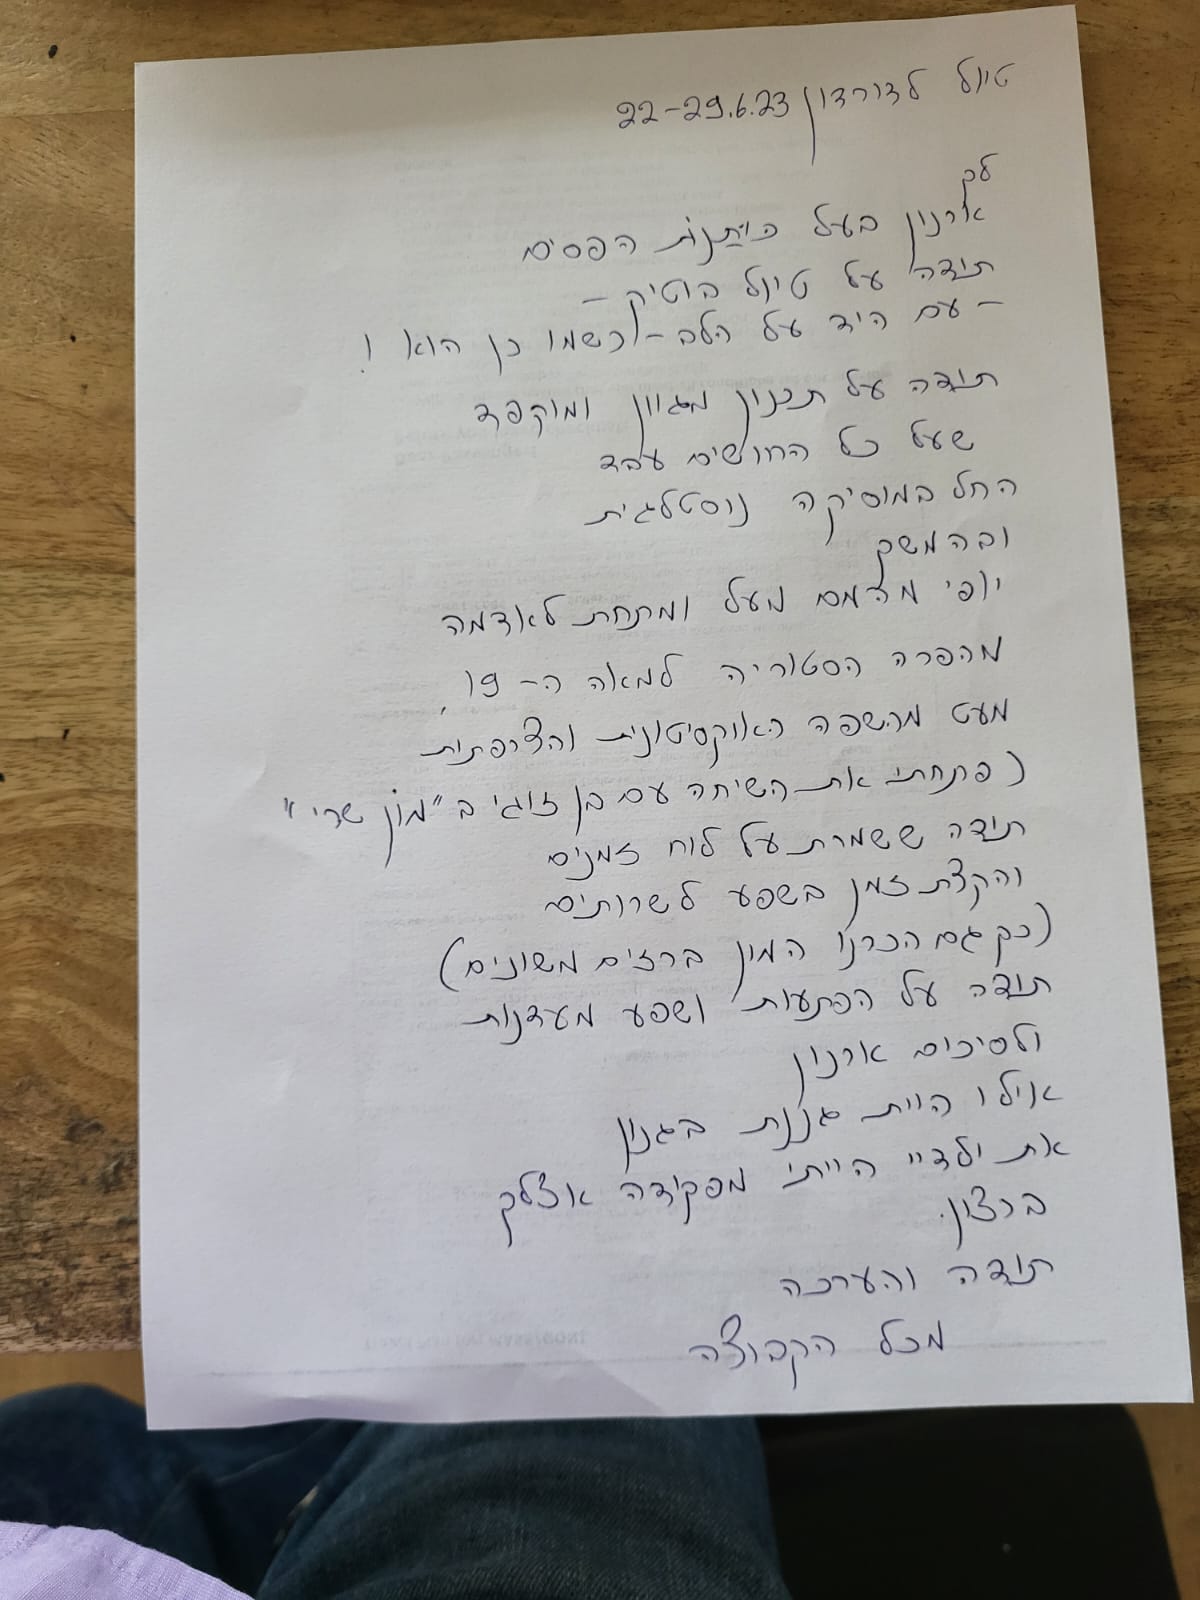 טיול לדורדון 22-29.6.23
לך
ארנון בעל כותנות הפסים
תודה על טיול בוטיק -
- עם היד על הלב - וכשמו כן הוא !
תודה על תכנון מגוון ומוקפד
שעל כל החושים עבד
החל במוסיקה נוסטלגית
ובהמשך
יופי מהמם מעל ומתחת לאדמה
מהפרה הסטוריה למאה ה- 19,
מעט מהשפה האוקסיטונית והצרפתית
(פתחתי את השיחה עם בן זוגי ב "מון שרי"
תודה ששמרת על לוח זמנים
והקצת זמן בשפע לשרותים
(כך גם הכרנו המון ברזים משונים)
תודה על הפתעות ושפע מעדנות
ולסיכום ארנון
אילו היית גננת בגנון
את ילדיי הייתי מפקידה אצלך
ברצון.
תודה והערכה
מכל הקבוצה